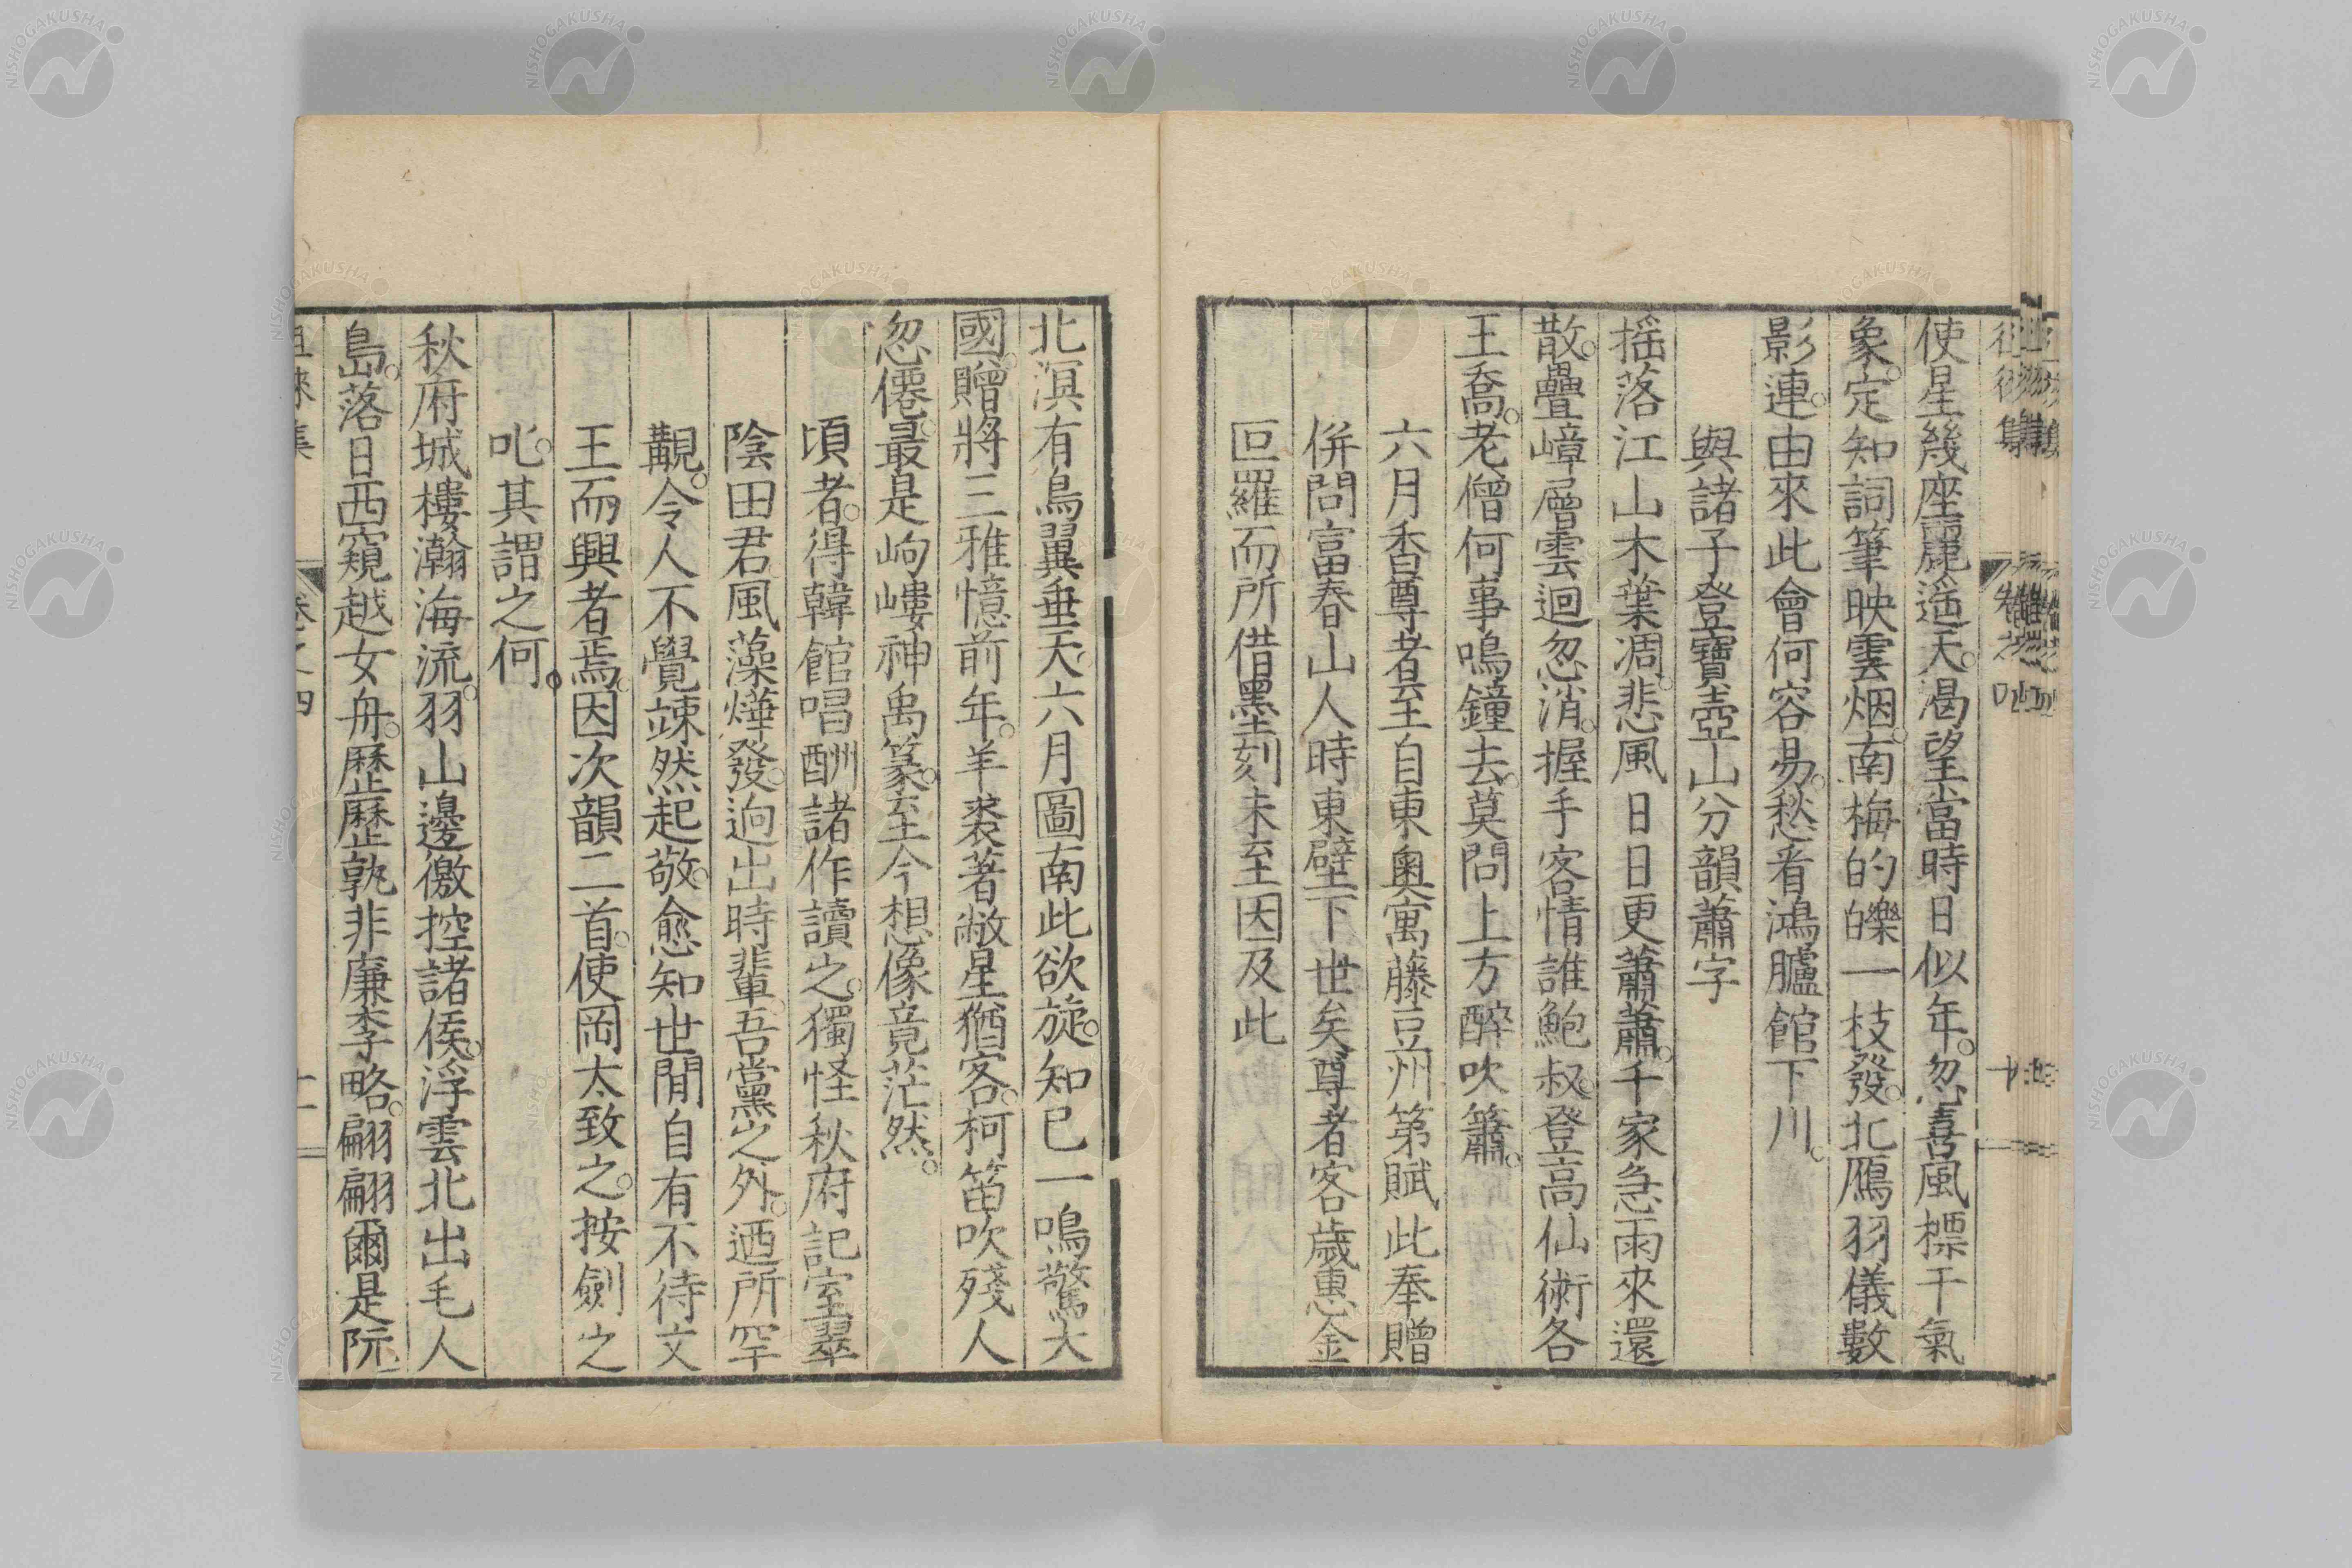 使星幾座麗遥天。渴望當時日似年。忽喜風標干氣
象。定知詞筆映雲烟。南梅的皪一枝發。北鴈羽儀數
影連。由來此會何容易。愁看鴻臚館下川。
與諸子登寶壺山分韻蕭字
搖落江山木葉凋。悲風日日更蕭蕭。千家急雨來還
散。疊嶂層雲迴忽消。握手客情誰鮑叔。登高仙術各
王喬。老僧何事鳴鐘去。莫問上方醉吹簫。
六月香尊者至自東奧寓藤豆州第賦此奉贈
併問富春山人時東壁下世矣尊者客歲惠金
叵羅而所借墨刻未至因及此
北溟有鳥翼垂天。六月圖南此欲旋。知已一鳴驚大
國。贈將三雅憶前年。羊裘著敝星猶客。柯笛吹殘人
忽僊。最是岣嶁神禹篆。至今想像竟茫然。
頃者。得韓館唱酬諸作讀之。獨怪秋府記室翠
陰田君風藻燁發。逈出時輩。吾黨之外。迺所罕
覯。令人不覺竦然起敬。愈知世間自有不待文
王而興者焉。因次韻二首。使岡太致之。按劍之
叱。其謂之何。
秋府城樓瀚海流。羽山邊徼控諸侯。浮雲北出毛人
島。落日西窺越女舟。歷歷孰非廉李略。翩翩爾是阮
徂徠集 卷之四 十一
NISHOGAKUSHA